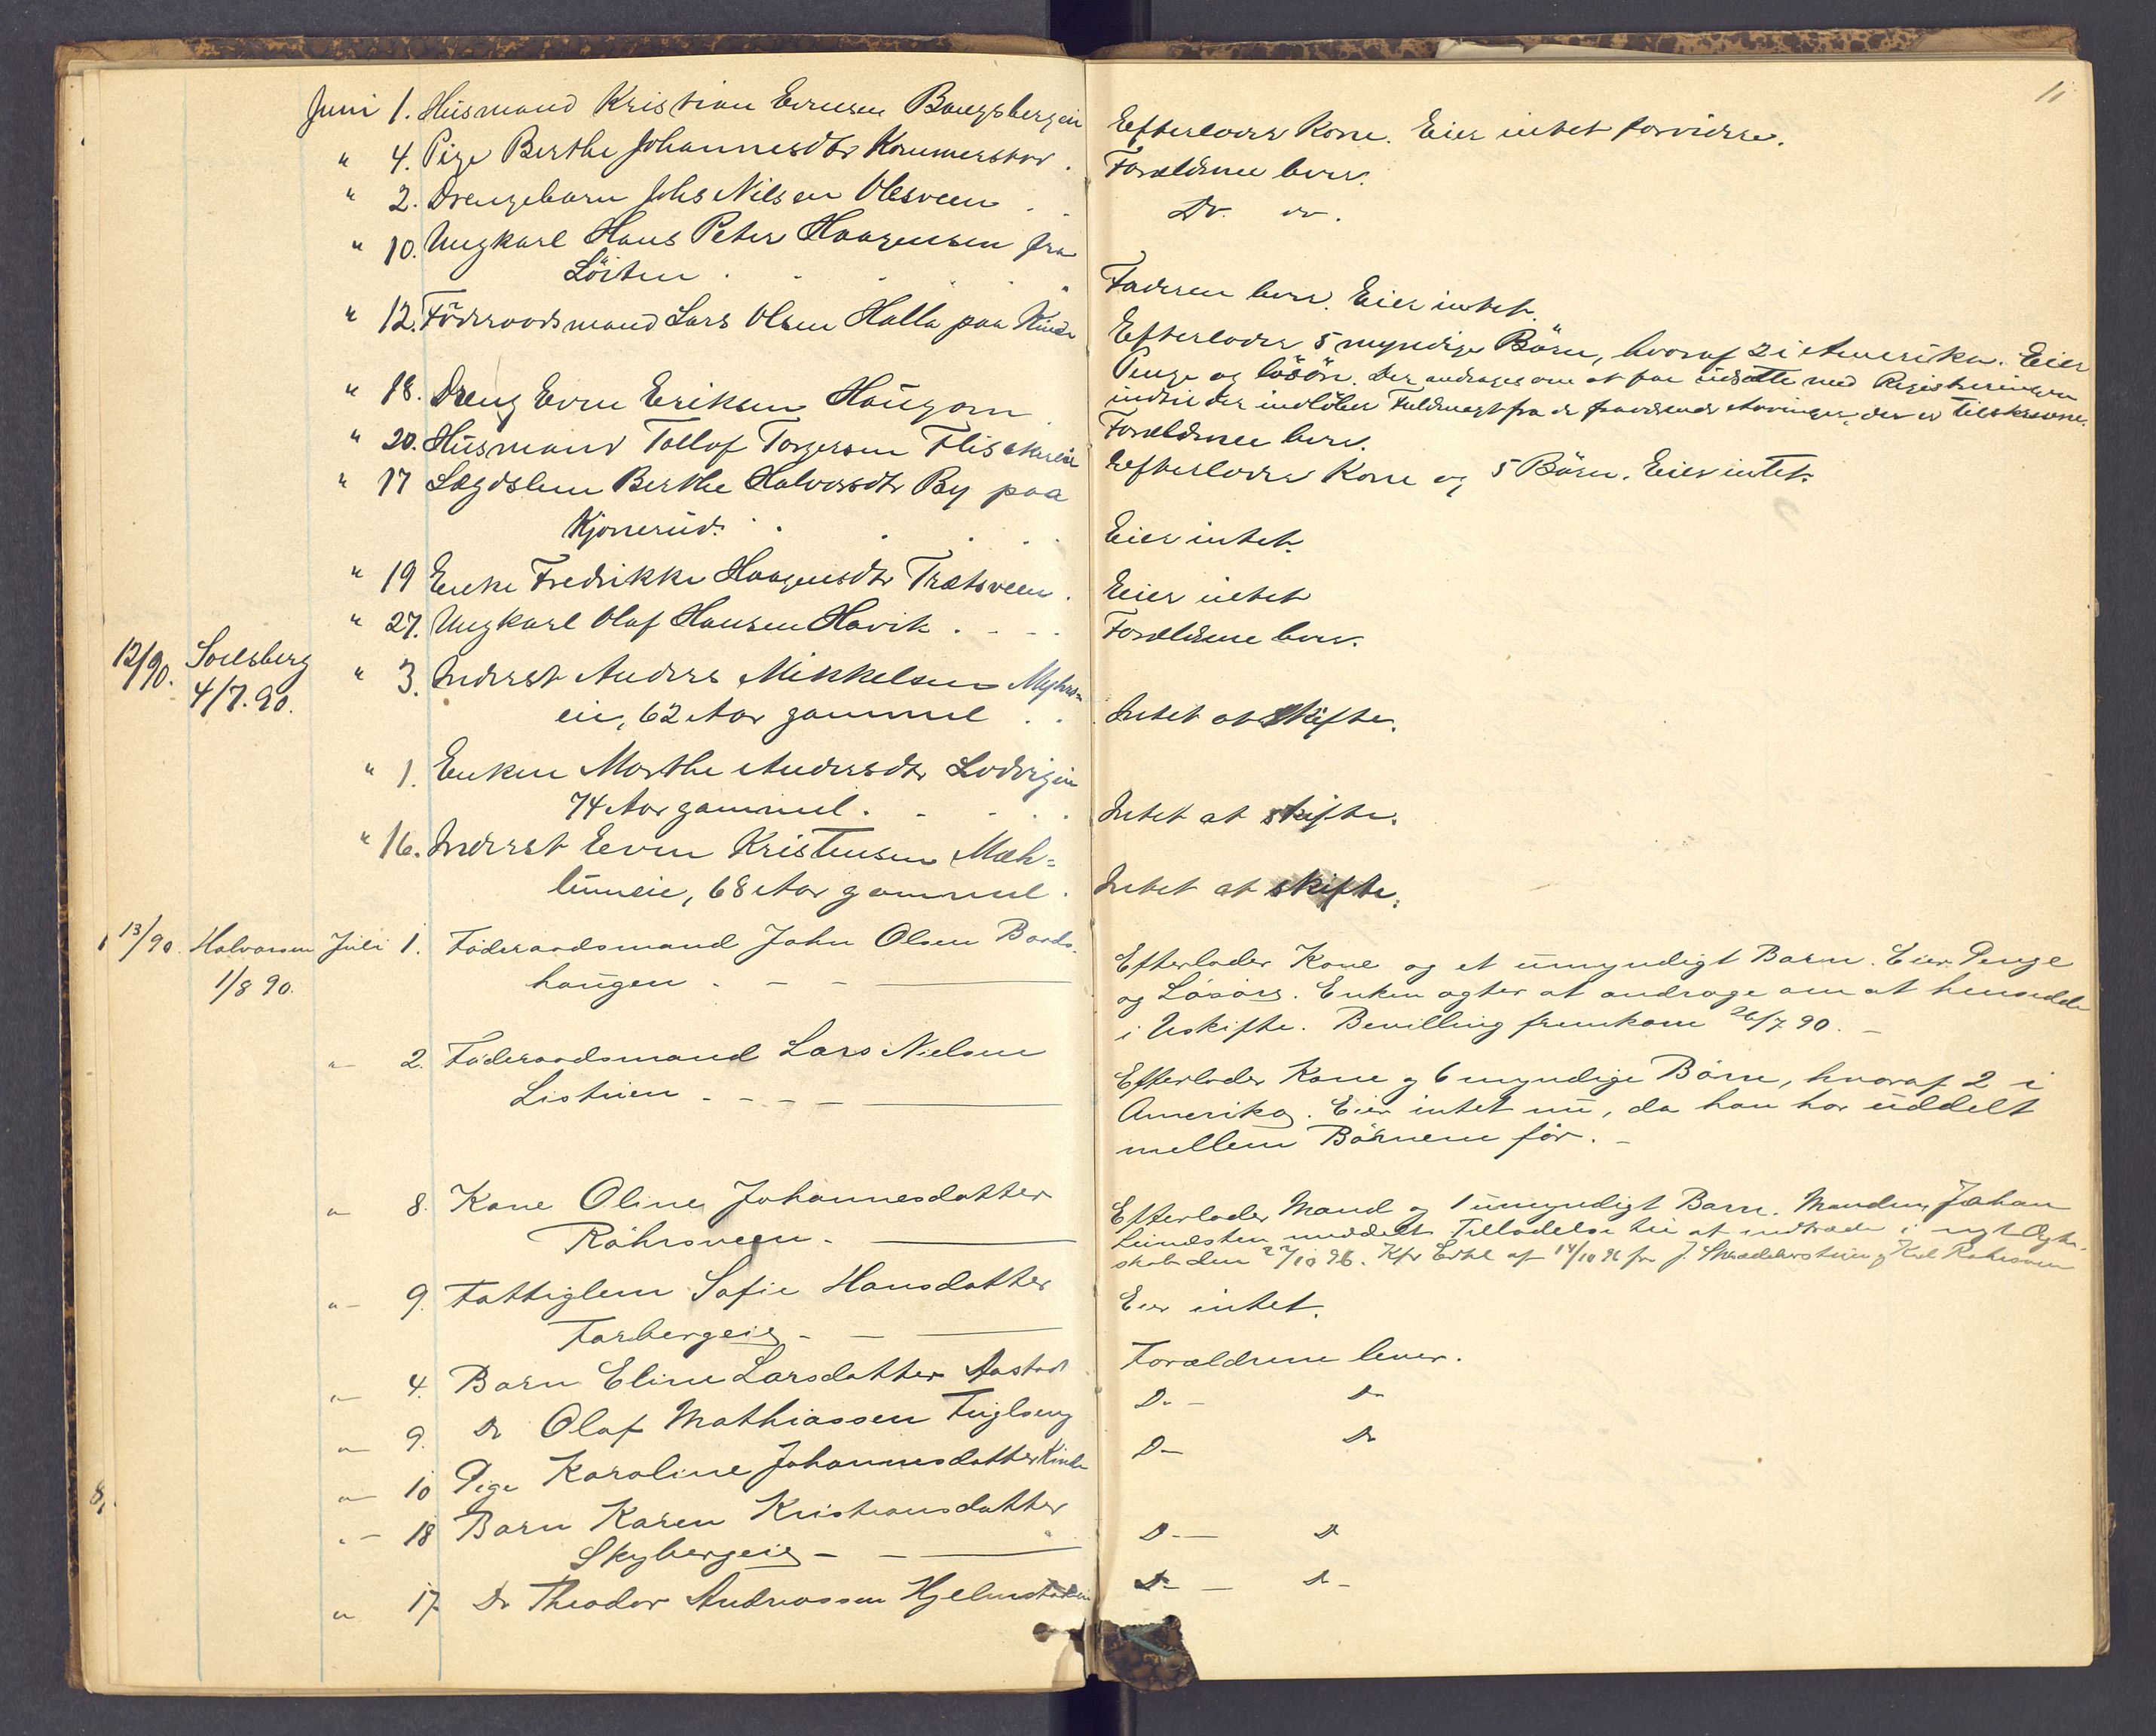 11
Juni 1. Husmand Kristian Evensen Bangsbergeie Efterlader Kone. Eier intet forvidere.
" 4. Pige Berthe Johannesdtr Kommerstad. Forældrene lever.
" 2. Drengebarn Johs Nilsen Olesveen . . Do. do.
" 10. Ungkarl Hans Peter Haagensen fra
Löiten . . . . . Faderen lever. Eier intet.
" 12. Föderaadsmand Lars Olsen Halla paa Kinde Efterlader 5 myndige Börn, hvoraf 2 i Amerika. Eier
Penge og lösöre. Der andrages om at faa udsatte med Registreringen
indtil der indlöber Fuldmagt fra de fraværende Arvinger, der er tilskrevne.
" 18. Dreng Even Eriksen Haugom Forældrene lever.
" 20. Husmand Tollof Torgersen Flisakereie Efterlader Kone og 5 Börn. Eier intet.
" 17 Lægdslem Berthe Halvorsdtr By paa
Kjonerud. . . . . Eier intet.
" 19 Enke Fredrikke Haagensdtr Trætsveen. Eier intet
" 27. Ungkarl Olaf Hansen Havik . . . . Forældrene lever.
12/90. Soelsberg
4/7.90.
" 3. Inderst Anders Mikkelsen Myhrs-
eie, 62 Aar gammel . . Intet at skifte.
" 1. Enken Marthe Andersdtr Lodvigeie
74 Aar gammel. . . . . Intet at skifte.
" 16. Inderst Even Kristensen Mæh=
lumeie, 68 Aar gammel. Intet at skifte.
13/90. Halvorsen Juli 1. Föderaadsmand John Olsen Baads-
1/8 90. haugen . - - Efterlader Kone og et umyndigt Barn. Eier Penge
og Lösöre. Enken agter at andrage om at hensidde
i Uskifte. Bevilling fremkom 26/7 90. -
" 2. Föderaadsmand Lars Nielsen
Listuen - - - - Efterlader Kone og 6 myndige Börn, hvoraf 2 i
Amerika. Eier intet nu, da han har uddelt
mellem Börnene för. -
" 8. Kone Oline Johannesdatter
Röhrsveen. Efterlader Mand og 1 umyndigt Barn. Manden Johan
meddelt Tilladelse til at indtræde i nyt Ægte-
skab den 27/10 96. Kfr Erkl af 14/10 96 fra J.
" 9. Fattiglem Sofie Hansdatter
Farbergeie - - Eier intet.
" 4. Barn Eline Larsdatter Aastad Forældrene lever.
" 9. Do Olaf Mathiassen Fuglseng Do - Do
" 10 Pige Karoline Johannesdatter Kinde Do - Do
" 18 Barn Karen Kristiansdatter
Skybergeie - - Do - Do
" 17. Do Theodor Andreassen Hjelmstadeie Do - Do -